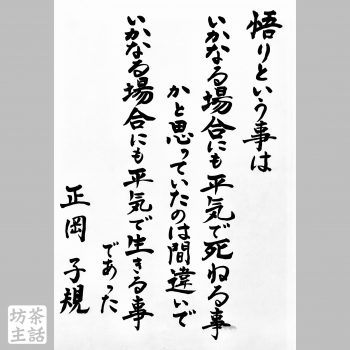 悟りという事は
いかなる場合にも平気で死ねる事
かと思っていたのは間違いで
いかなる場合にも平気で生きる事
であった
正岡子規
坊主
茶話